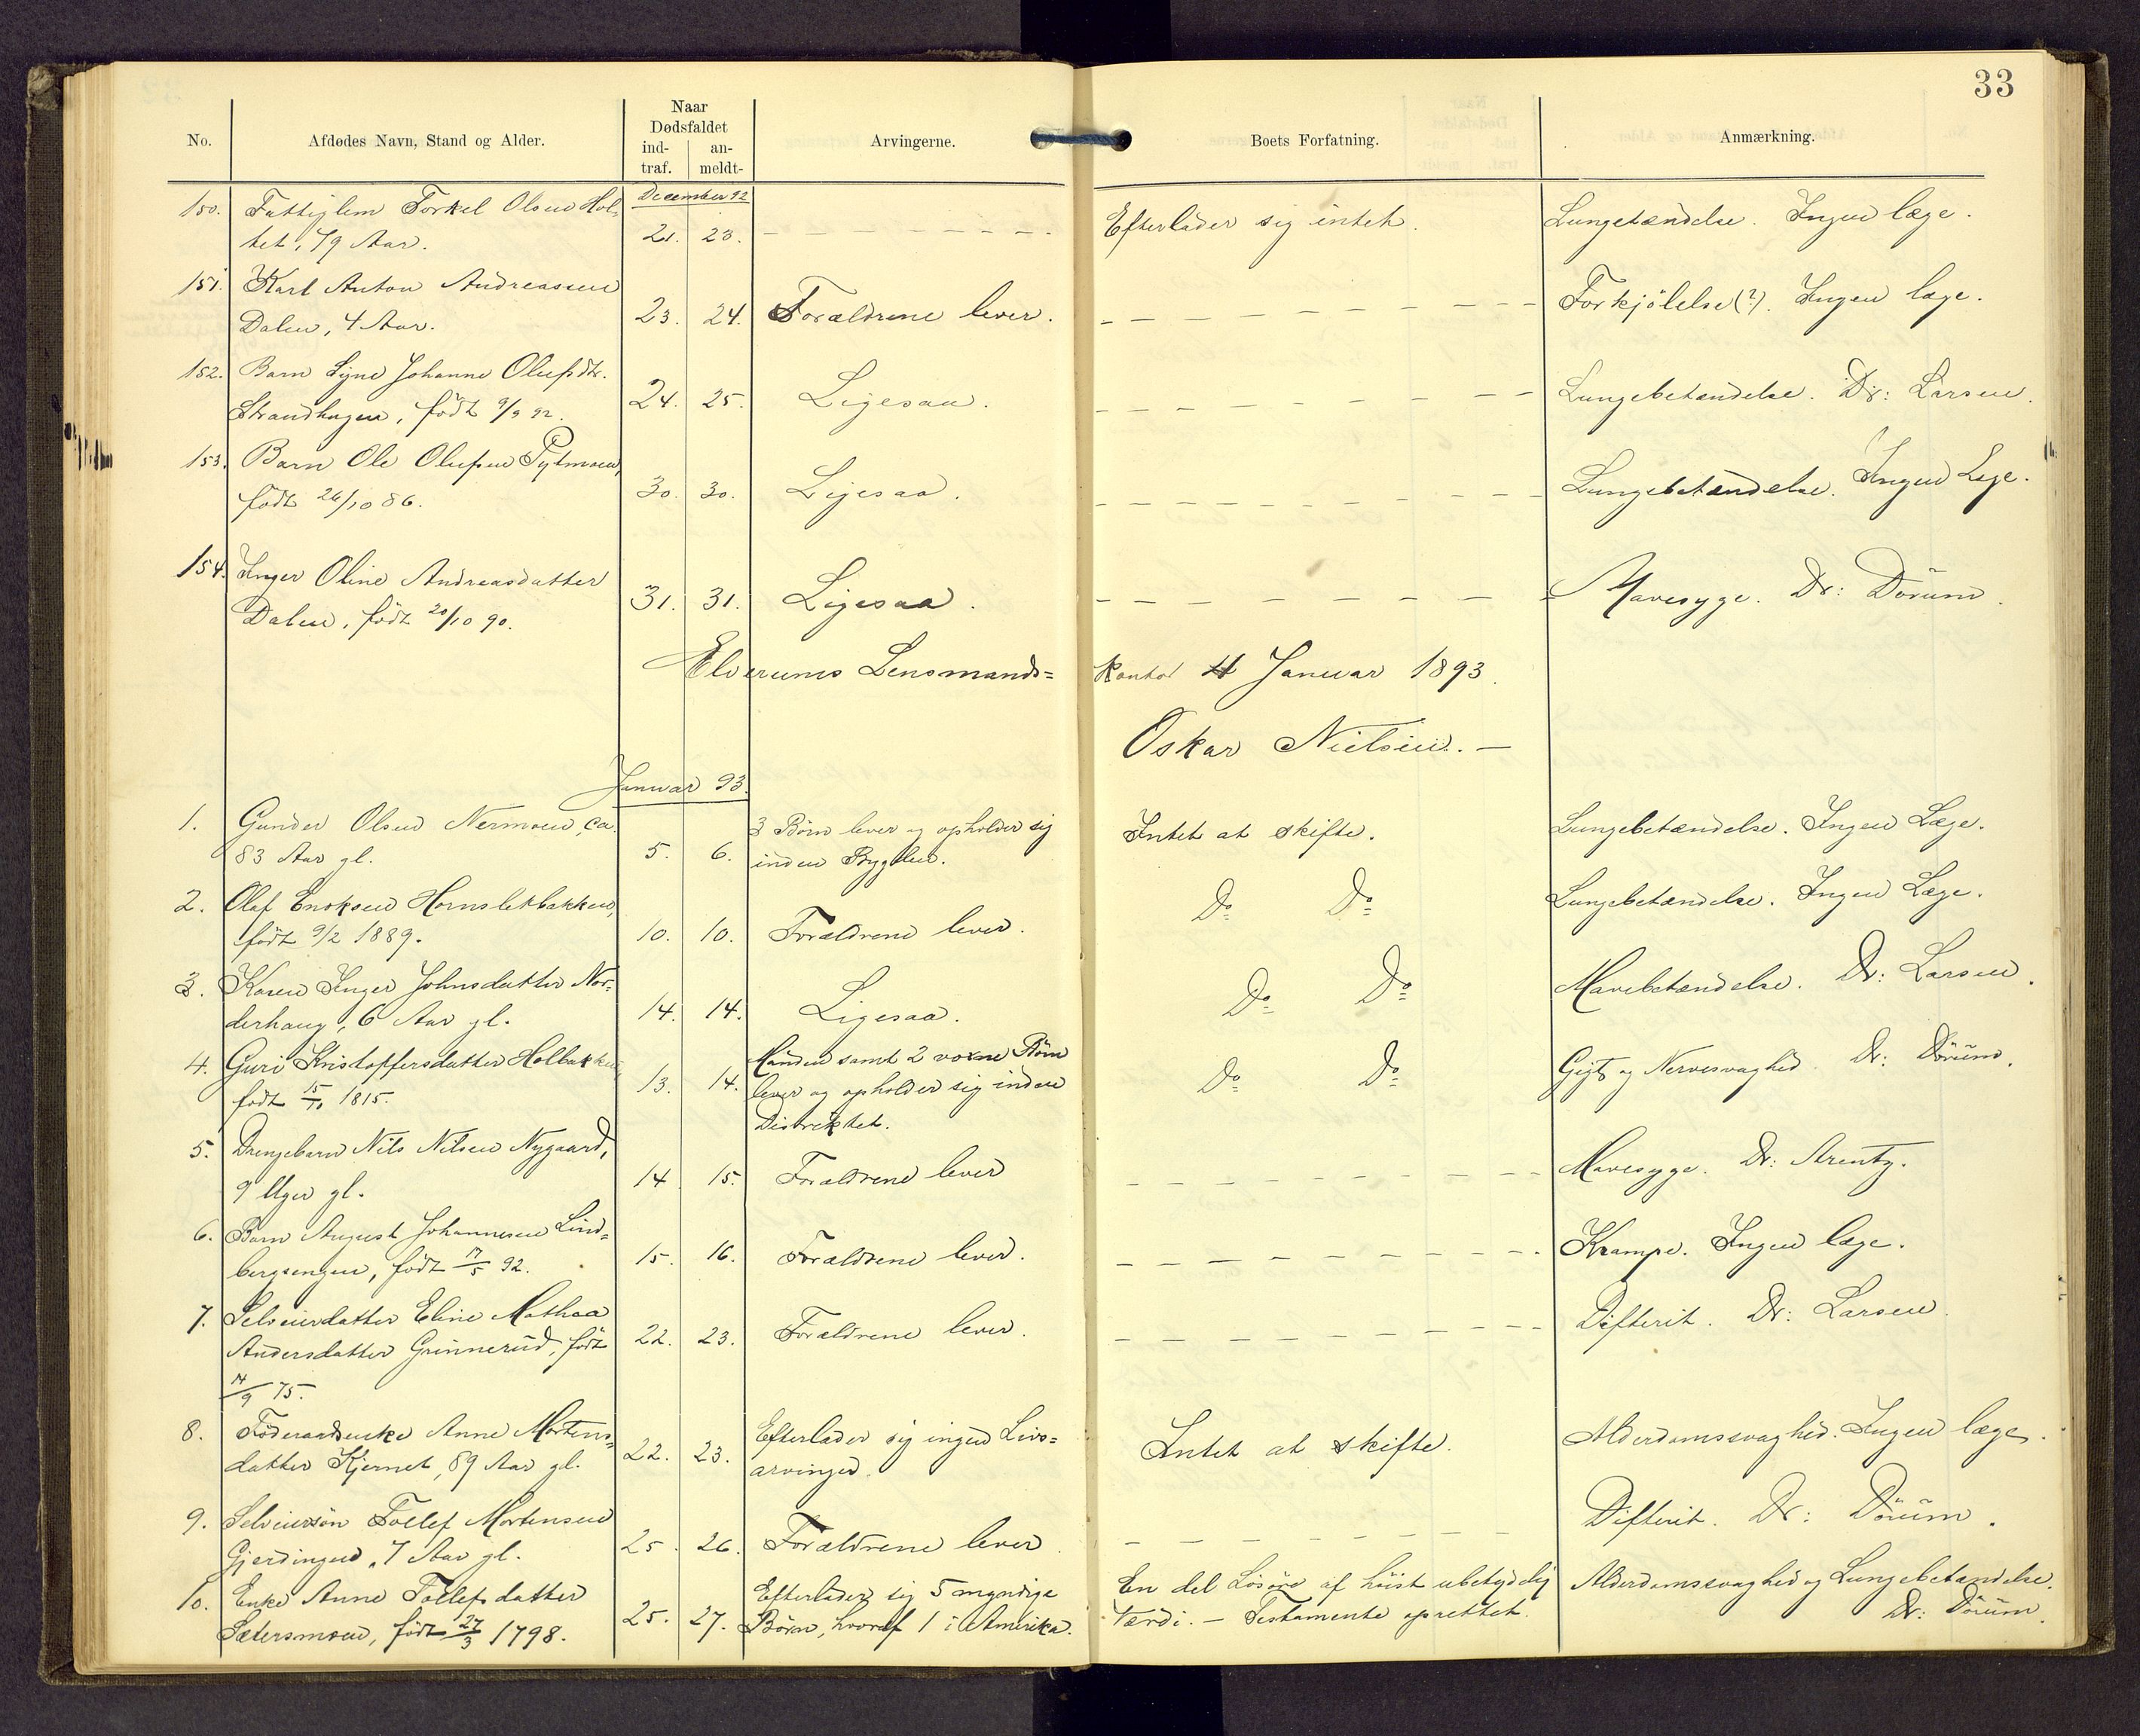 33
No. Afdødes Navn, Stand og Alder. Naar Dødsfaldet ind-traf. an-meldt- Arvingerne. Boets Forfatning. Anmærkning.
December 92
150. Fattiglem Torkel Olsen Hol- Efterlader sig intet. Lungetændelse. Ingen læge.
tet, 79 Aar. 21. 23.
151. Karl Anton Andreassen
Dalen, 4 Aar. 23. 24. Forældrene lever. Forkjölelse(?). Ingen læge.
152. Barn Signe Johanne Olufsdtr.
Strandhagen, födt 9/9 92. 24. 25. Ligesaa. Lungebetændelse. Dr: Larsen.
153. Barn Ole Olufsen Pytmoen,
födt 26/10 86. 30. 30. Ligesaa. Lungebetændelse. Ingen Læge.
154. Inger Oline Andreasdatter
Dalen, födt 20/10 90. 31. 31. Ligesaa. Mavesyge. Dr: Dörum.
Elverums Lensmands= kontor 4 Januar 1893.
Oskar Nielsen. —
Januar 93.
1. Gunder Olsen Nermoen, ca. 3 Börn lever og opholder sig Intet at skifte. Lungebetændelse. Ingen Læge.
83 Aar gl. 5. 6. inden Bygden.
2. Olaf Enoksen Hornsletbakken, Do Do Lungebetændelse. Ingen Læge.
födt 9/2 1889. 10. 10. Forældrene lever.
3. Karen Inger Johnsdatter Nor- Do Do Mavebetændelse. Dr: Larsen.
derhaug, 6 Aar gl. 14. 14. Ligesaa.
4. Guri Kristoffersdatter Holbakken Manden samt 2 voxne Börn Do Do Gigt og Nervesvaghed. Dr: Dörum.
födt 15/10 1815. 13. 14. lever og opholder sig inden
Distriktet.
5. Drengebarn Nils Nilsen Nygaard,
9 Uger gl. 14 15. Forældrene lever Mavesyge. Dr: Arentz.
6. Barn August Johannesen Lind-
bergsengen, födt 17/5 92. 15. 16. Forældrene lever. Krampe. Ingen læge.
7. Selveierdatter Eline Mathea
Andersdatter Grinnerud, födt 22. 23. Forældrene lever. Difterit. Dr: Larsen
14/9 75.
8. Föderaadsenke Anne Mortens- Efterlader sig ingen Livs= Intet at skifte. Alderdomssvaghed. Ingen læge.
datter Kjernet, 89 Aar gl. 22. 23. arvinger.
9. Selveiersön Tollef Mortensen
Gjerdingen, 7 Aar gl. 25. 26. Forældrene lever. Difterit. Dr: Dörum.
10. Enke Anne Tollefsdatter Efterlader sig 5 myndige En del Lösöre af höist ubetydelig Alderdomssvaghed og Lungebetændelse.
Sætersmoen, födt 27/3 1798. 25. 27. Börn, hvoraf 1 i Amerika. Værdi. — Testamente oprettet. Dr: Dörum.